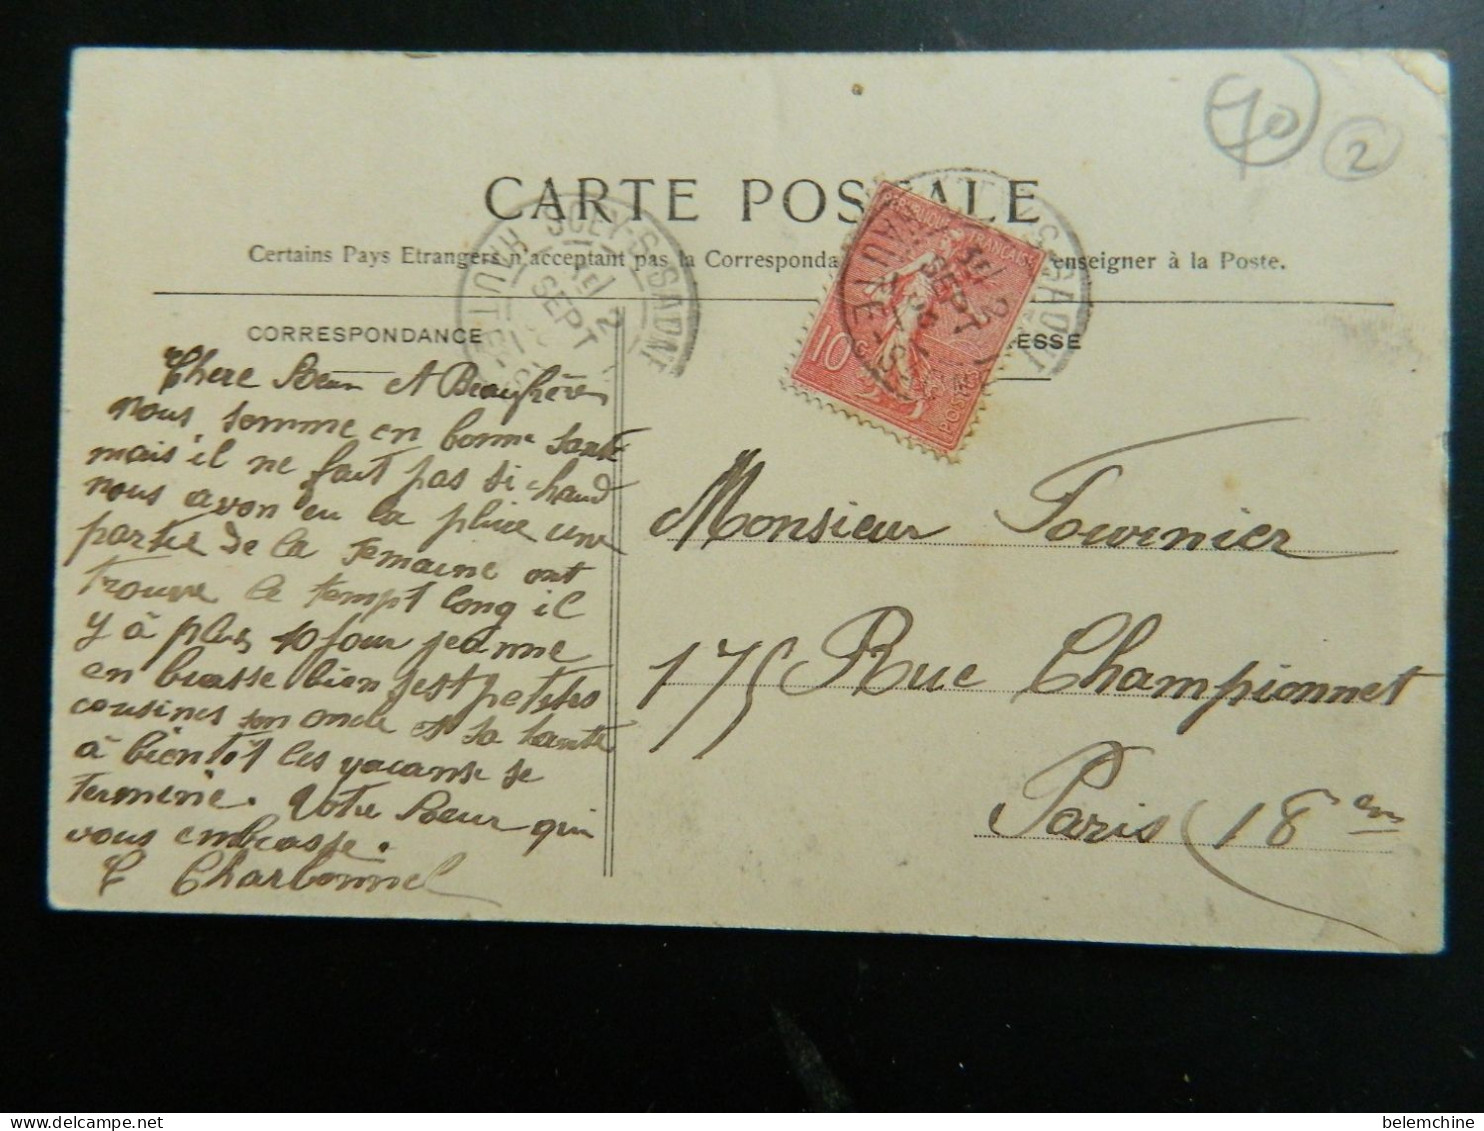 70
2
CARTE POSTALE
Certains Pays Etrangers n'acceptant pas la Corresponda enseigner à la Poste.
SCEY-S-SAONE
HAUTE-S
2
SEPT
10c
POSTES
CORRESPONDANCE
ESSE
Chere Sœur et Beaufrère
nous somme en bonne santé
mais il ne fait pas si chaud
nous avon eu la pluie une
partie de la semaine ont
trouve le tempt long il
y à plus 10 jour jeanne
en brasse bien sest petites
cousines son oncle et sa tante
à bientôt les vacanse se
termine. Votre Sœur qui
vous embrasse.
C Charbonnel
Monsieur Fournier
175 Rue Championnet
Paris 18em
belemchine